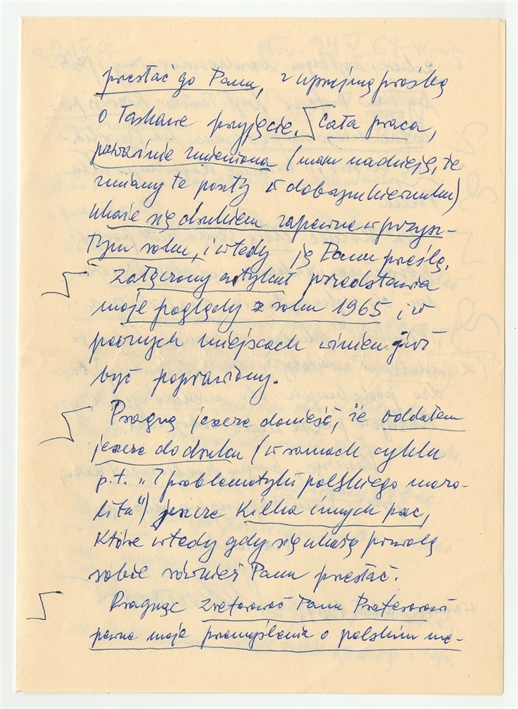 przesłać go Panu, z uprzejmą prośbą
o łaskawe przyjęcie. Cała praca,
poważnie zmieniona (mam nadzieję, że
zmiany te poszły w dobrym kierunku)
ukaże się drukiem zapewne w przysz-
łym roku, i wtedy ją Panu prześlę.
Załączony artykuł przedstawia
moje poglądy z roku 1965 i w
pewnych miejscach winien już
być poprawiony.
Pragnę jeszcze donieść, że oddałem
jeszcze do druku (w ramach cyklu
p.t. „Z problematyki polskiego mezo-
litu") jeszcze kilka innych prac,
które wtedy gdy się ukażą pozwolę
sobie również Panu przesłać.
Pragnąc zreferować Panu Profesorowi
pewne moje przemyślenia o polskim me-